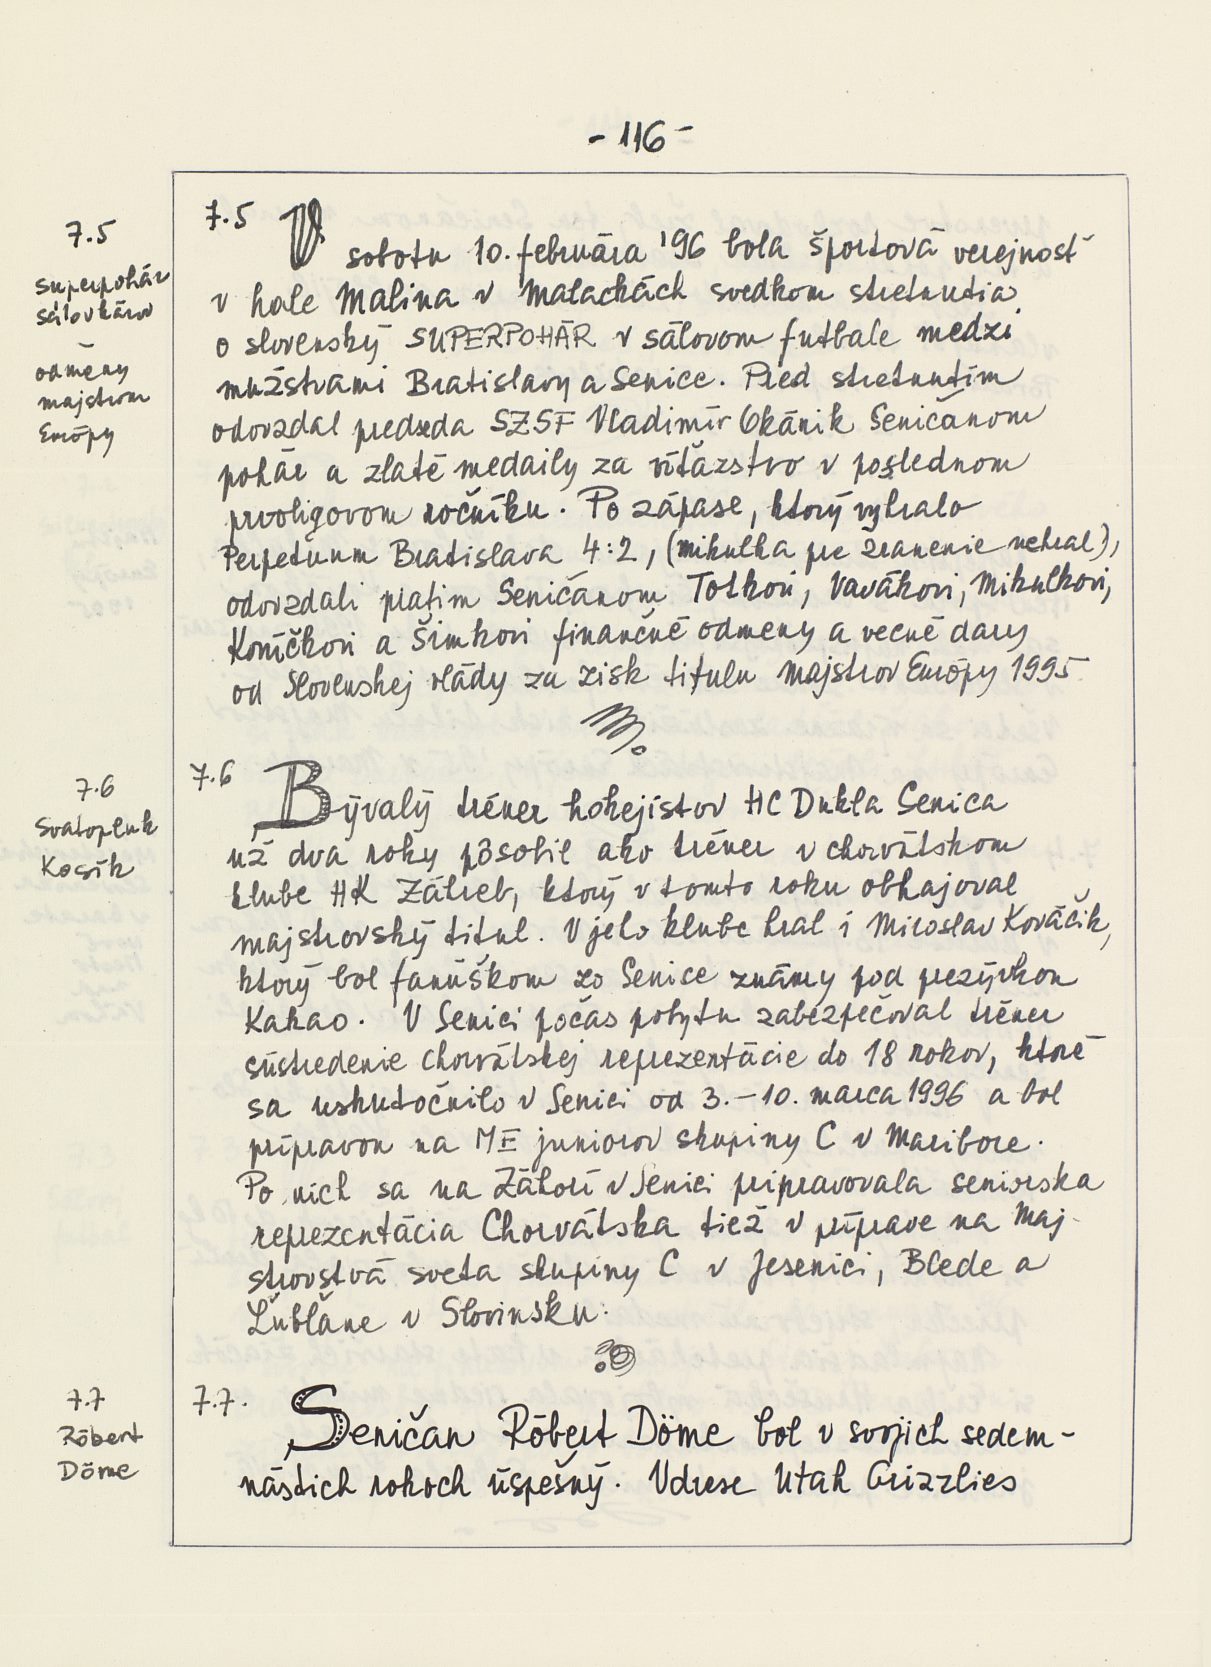 - 116 -
7.5
superpohár
sálovkárov
-
odmeny
majstrom
Európy
7.5 V sobotu 10. februára '96 bola športová verejnosť
v hale Malina v Malackách svedkom stretnutia
o slovenský SUPERPOHÁR v sálovom futbale medzi
mužstvami Bratislavy a Senice. Pred stretnutím
odovzdal predseda SZSF Vladimír Okánik Seničanom
pohár a zlaté medaily za víťazstvo v poslednom
prvoligovom ročníku. Po zápase, ktorý vyhralo
Perpetuum Bratislava 4:2, (Mikulka pre zranenie nehral),
odovzdali piatim Seničanom Totkovi, Vavákovi, Mikulkovi,
Koníčkovi a Šimkovi finančné odmeny a vecné dary
od Slovenskej vlády za zisk titulu majstrov Európy 1995
7.6
Svatopluk
Kosík
7.6 Bývalý tréner hokejistov HC Dukla Senica
už dva roky pôsobil ako tréner v chorvátskom
klube HK Záhreb, ktorý v tomto roku obhajoval
majstrovský titul. V jeho klube hral i Miroslav Kováčik,
ktorý bol fanúškom zo Senice známy pod prezývkou
Kakao. V Senici počas pobytu zabezpečoval tréner
sústredenie chorvátskej reprezentácie do 18 rokov, ktoré
sa uskutočnilo v Senici od 3. – 10. marca 1996 a bol
prípravou na ME juniorov skupiny C v Maribore.
Po nich sa na Záhorí v Senici pripravovala seniorska
reprezentácia Chorvátska tiež v príprave na Maj-
strovstvá sveta skupiny C v Jesenici, Blede a
Ľubľane v Slovinsku.
7.7
Róbert
Döme
7.7. Seničan Róbert Döme bol v svojich sedem-
nástich rokoch úspešný. V drese Utah Grizzlies